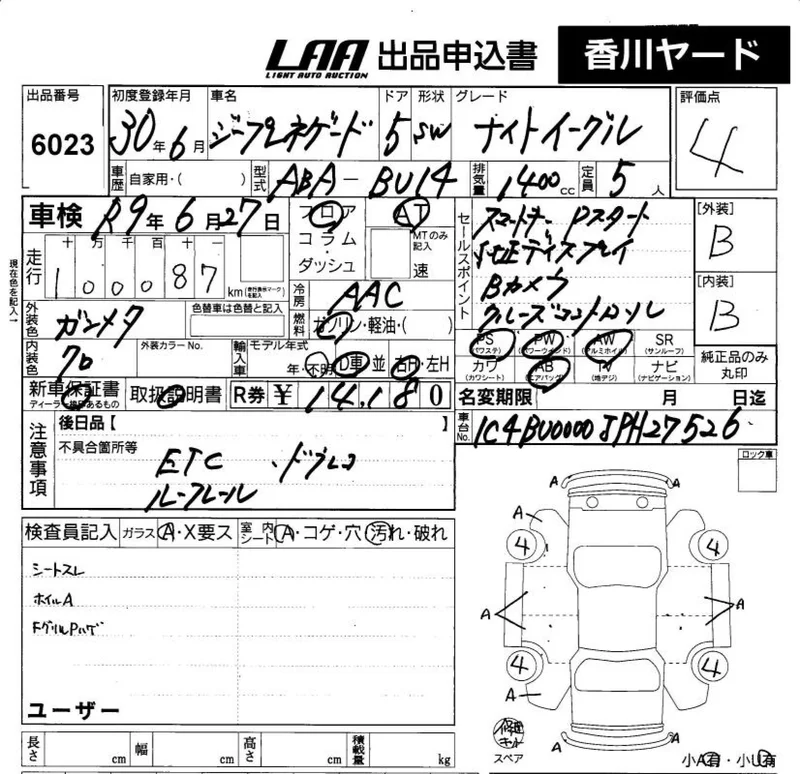 LAA 出品申込書 香川ヤード
LIGHT AUTO AUCTION
出品番号 初度登録年月 車名 ドア 形状 グレード 評価点
6023 30年6月 ジープレネゲード 5 SW ナイトイーグル 4
車歴 自家用・( ) 型式 ABA-BU14 排気量 1400cc 定員 5人
車検 R9年6月27日 フロア AT セールスポイント スマートキー Pスタート [外装]
コラム・ MTのみ記入 純正ディスプレイ B
現在色を記入→ 走行 十 万 千 百 十 一 ダッシュ 速 Bカメラ [内装]
100087km (走行不明マークを記入) 冷房 AAC クルーズコントロール B
外装色 ガンメタ 色替車は色替と記入 燃料 ガソリン・軽油・( ) PS (パワステ) PW (パワーウインド) AW (アルミホイル) SR (サンルーフ)
内装色 クロ 外装カラーNo. 輸入車 モデル年式 年・不明 D車 並 右H・左H カワ (カワシート) AB (エアバッグ) TV (地デジ) ナビ (ナビゲーション) 純正品のみ丸印
新車保証書 取扱説明書 R券 ¥ 14,180 名変期限 月 日迄
車台No. 1C4BU0000JPH27526
注意事項 後日品【 】
不具合箇所等 ロック車
ETC ・ドラレコ
ルーフレール
検査員記入 ガラス A・X要ス 室内シート A・コゲ・穴 汚れ・破れ
シートスレ
ホイルA
FグリルPハゲ
A A
A
4 4
A A
4 4
A
A A
ユーザー
修理キット
スペア 小A有・小U有
長さ cm 幅 cm 高さ cm 積載量 kg